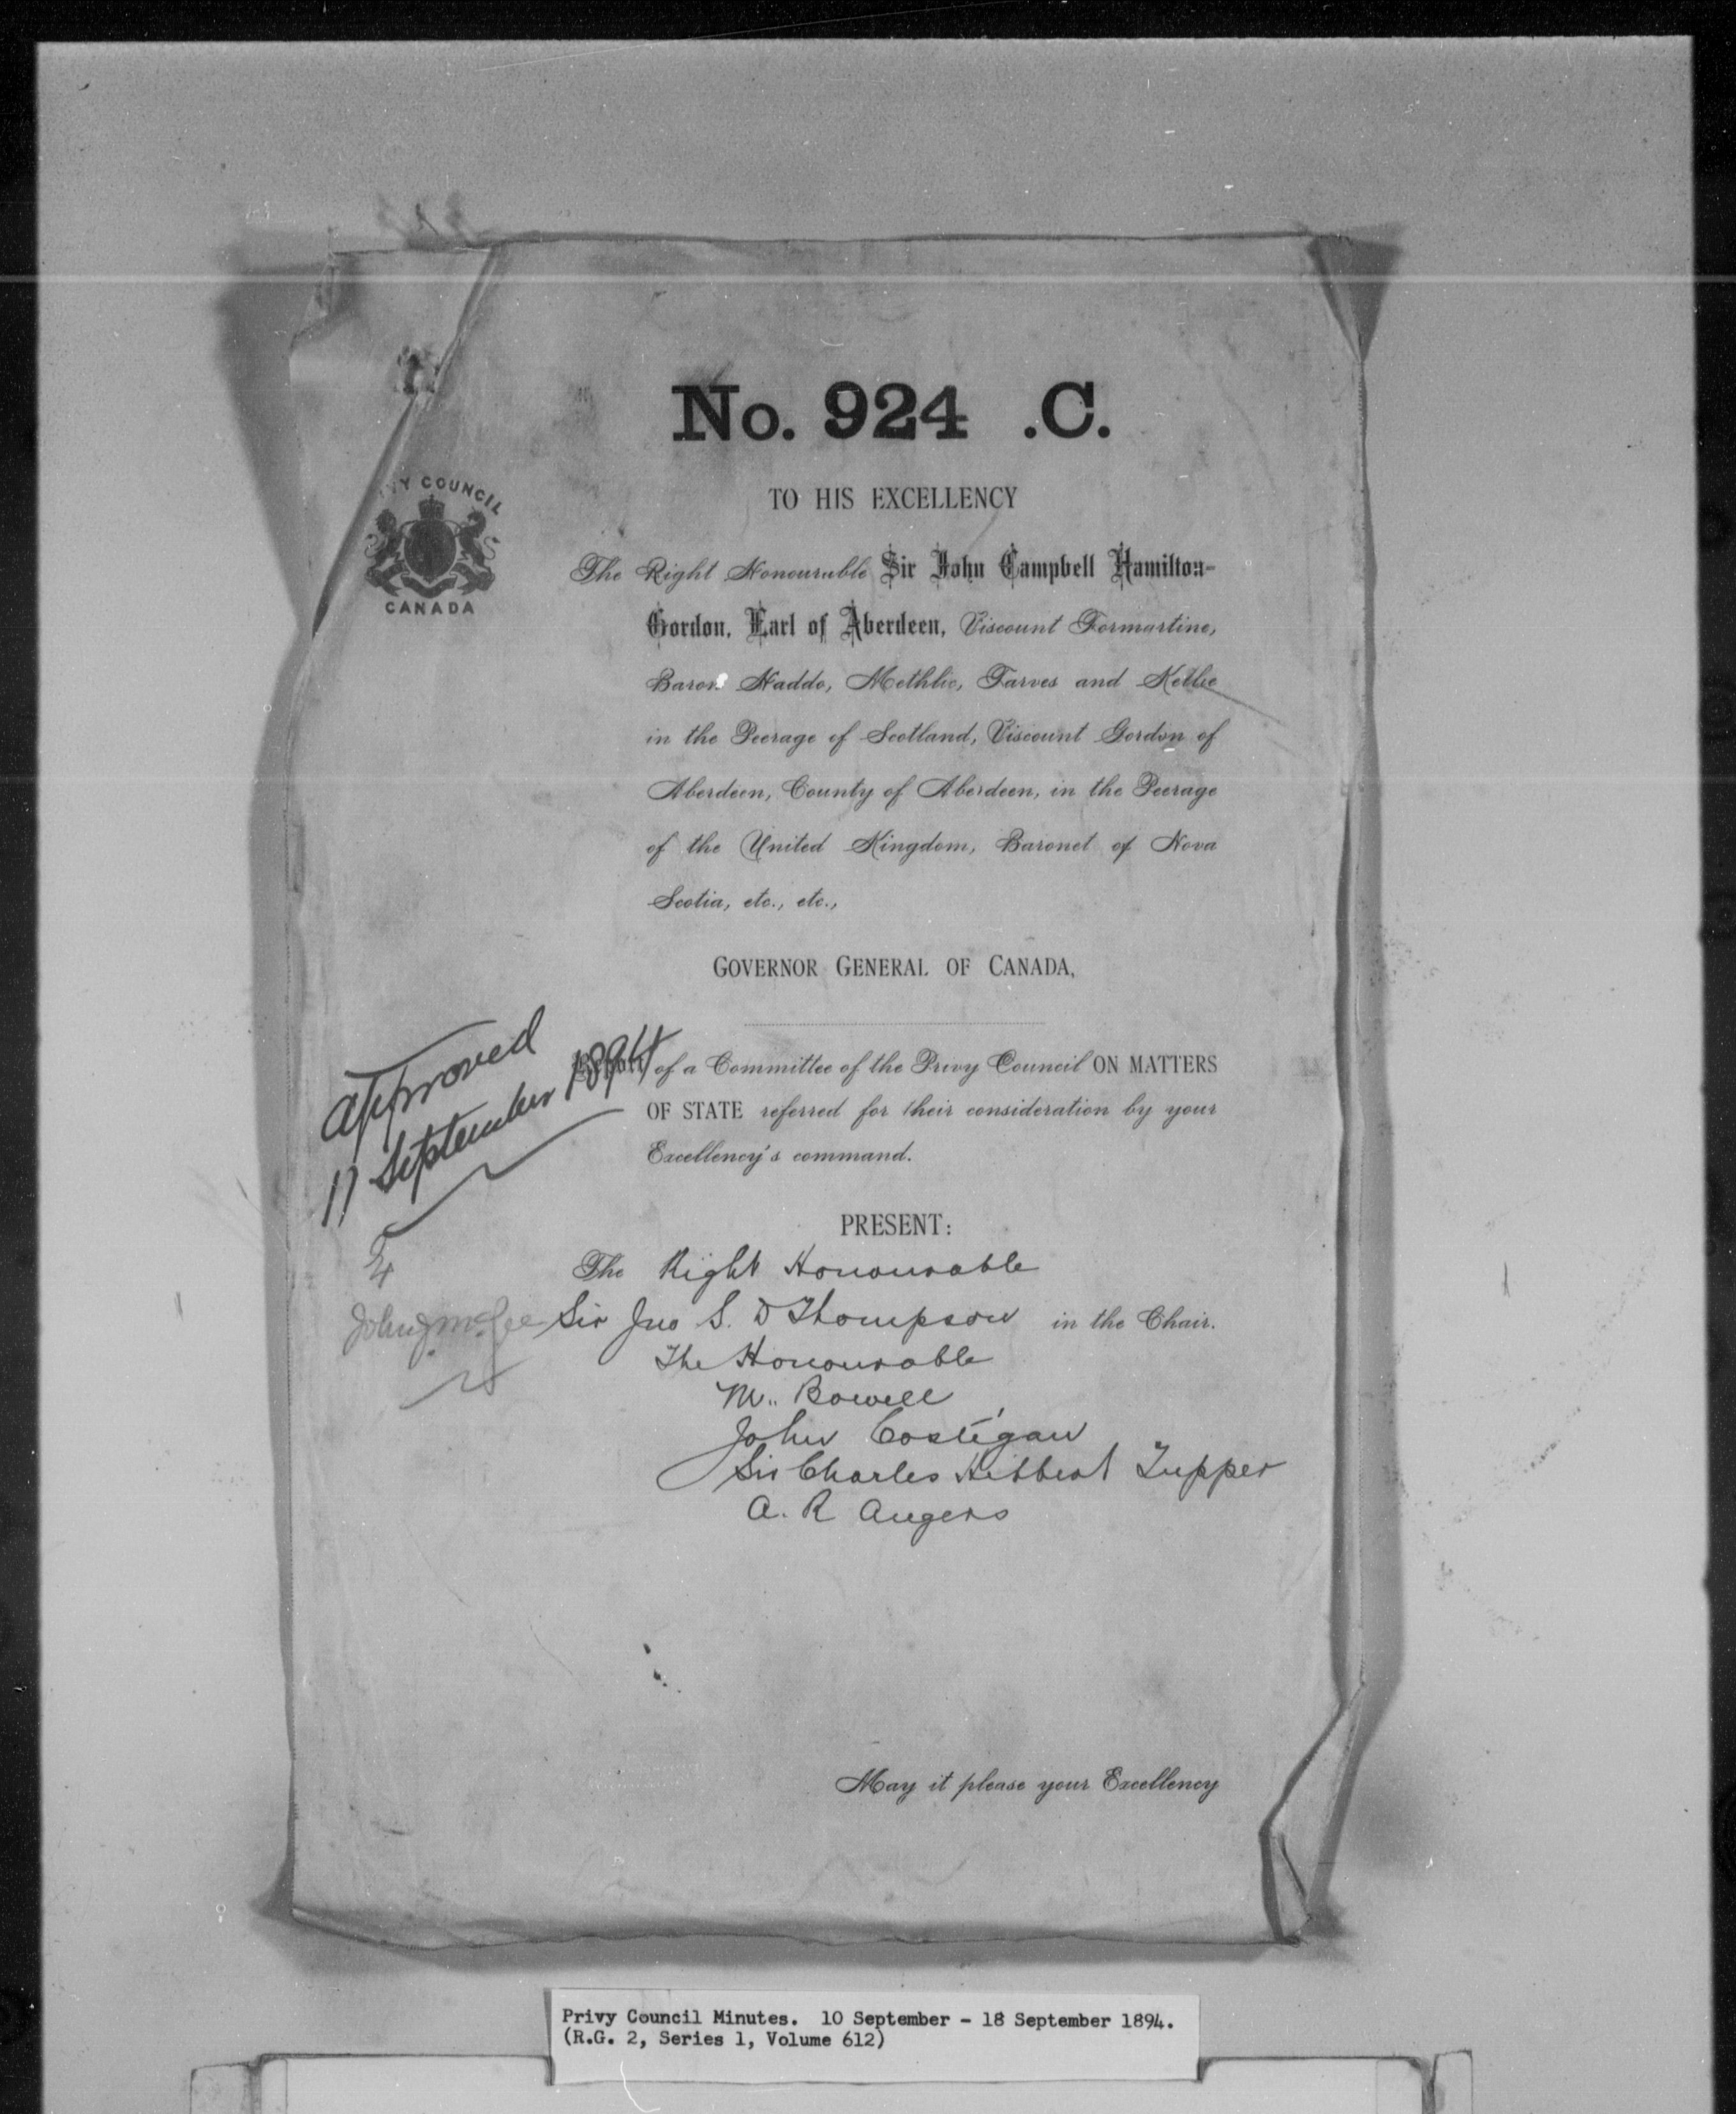 No. 924 .C.
VY COUNCIL
CANADA
TO HIS EXCELLENCY
The Right Honourable Sir John Campbell Hamilton-
Gordon, Earl of Aberdeen, Viscount Formartine,
Baron Haddo, Methlic, Tarves and Kellie
in the Peerage of Scotland, Viscount Gordon of
Aberdeen, County of Aberdeen, in the Peerage
of the United Kingdom, Baronet of Nova
Scotia, etc., etc.,
GOVERNOR GENERAL OF CANADA,
approved
17 September 1894
Report of a Committee of the Privy Council ON MATTERS
OF STATE referred for their consideration by your
Excellency's command.
PRESENT:
The Right Honourable
John J McGee
Sir Jno S. D Thompson in the Chair.
The Honourable
M. Bowell
John Costigan
Sir Charles Hibbert Tupper
A. R Angers
May it please your Excellency
Privy Council Minutes. 10 September - 18 September 1894.
(R.G. 2, Series 1, Volume 612)